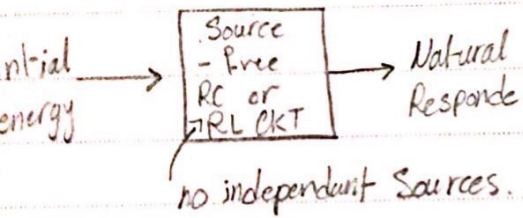 ntial
energy
Source
- free
RC or
RL CKT
Natural
Responde
no independant Sources.